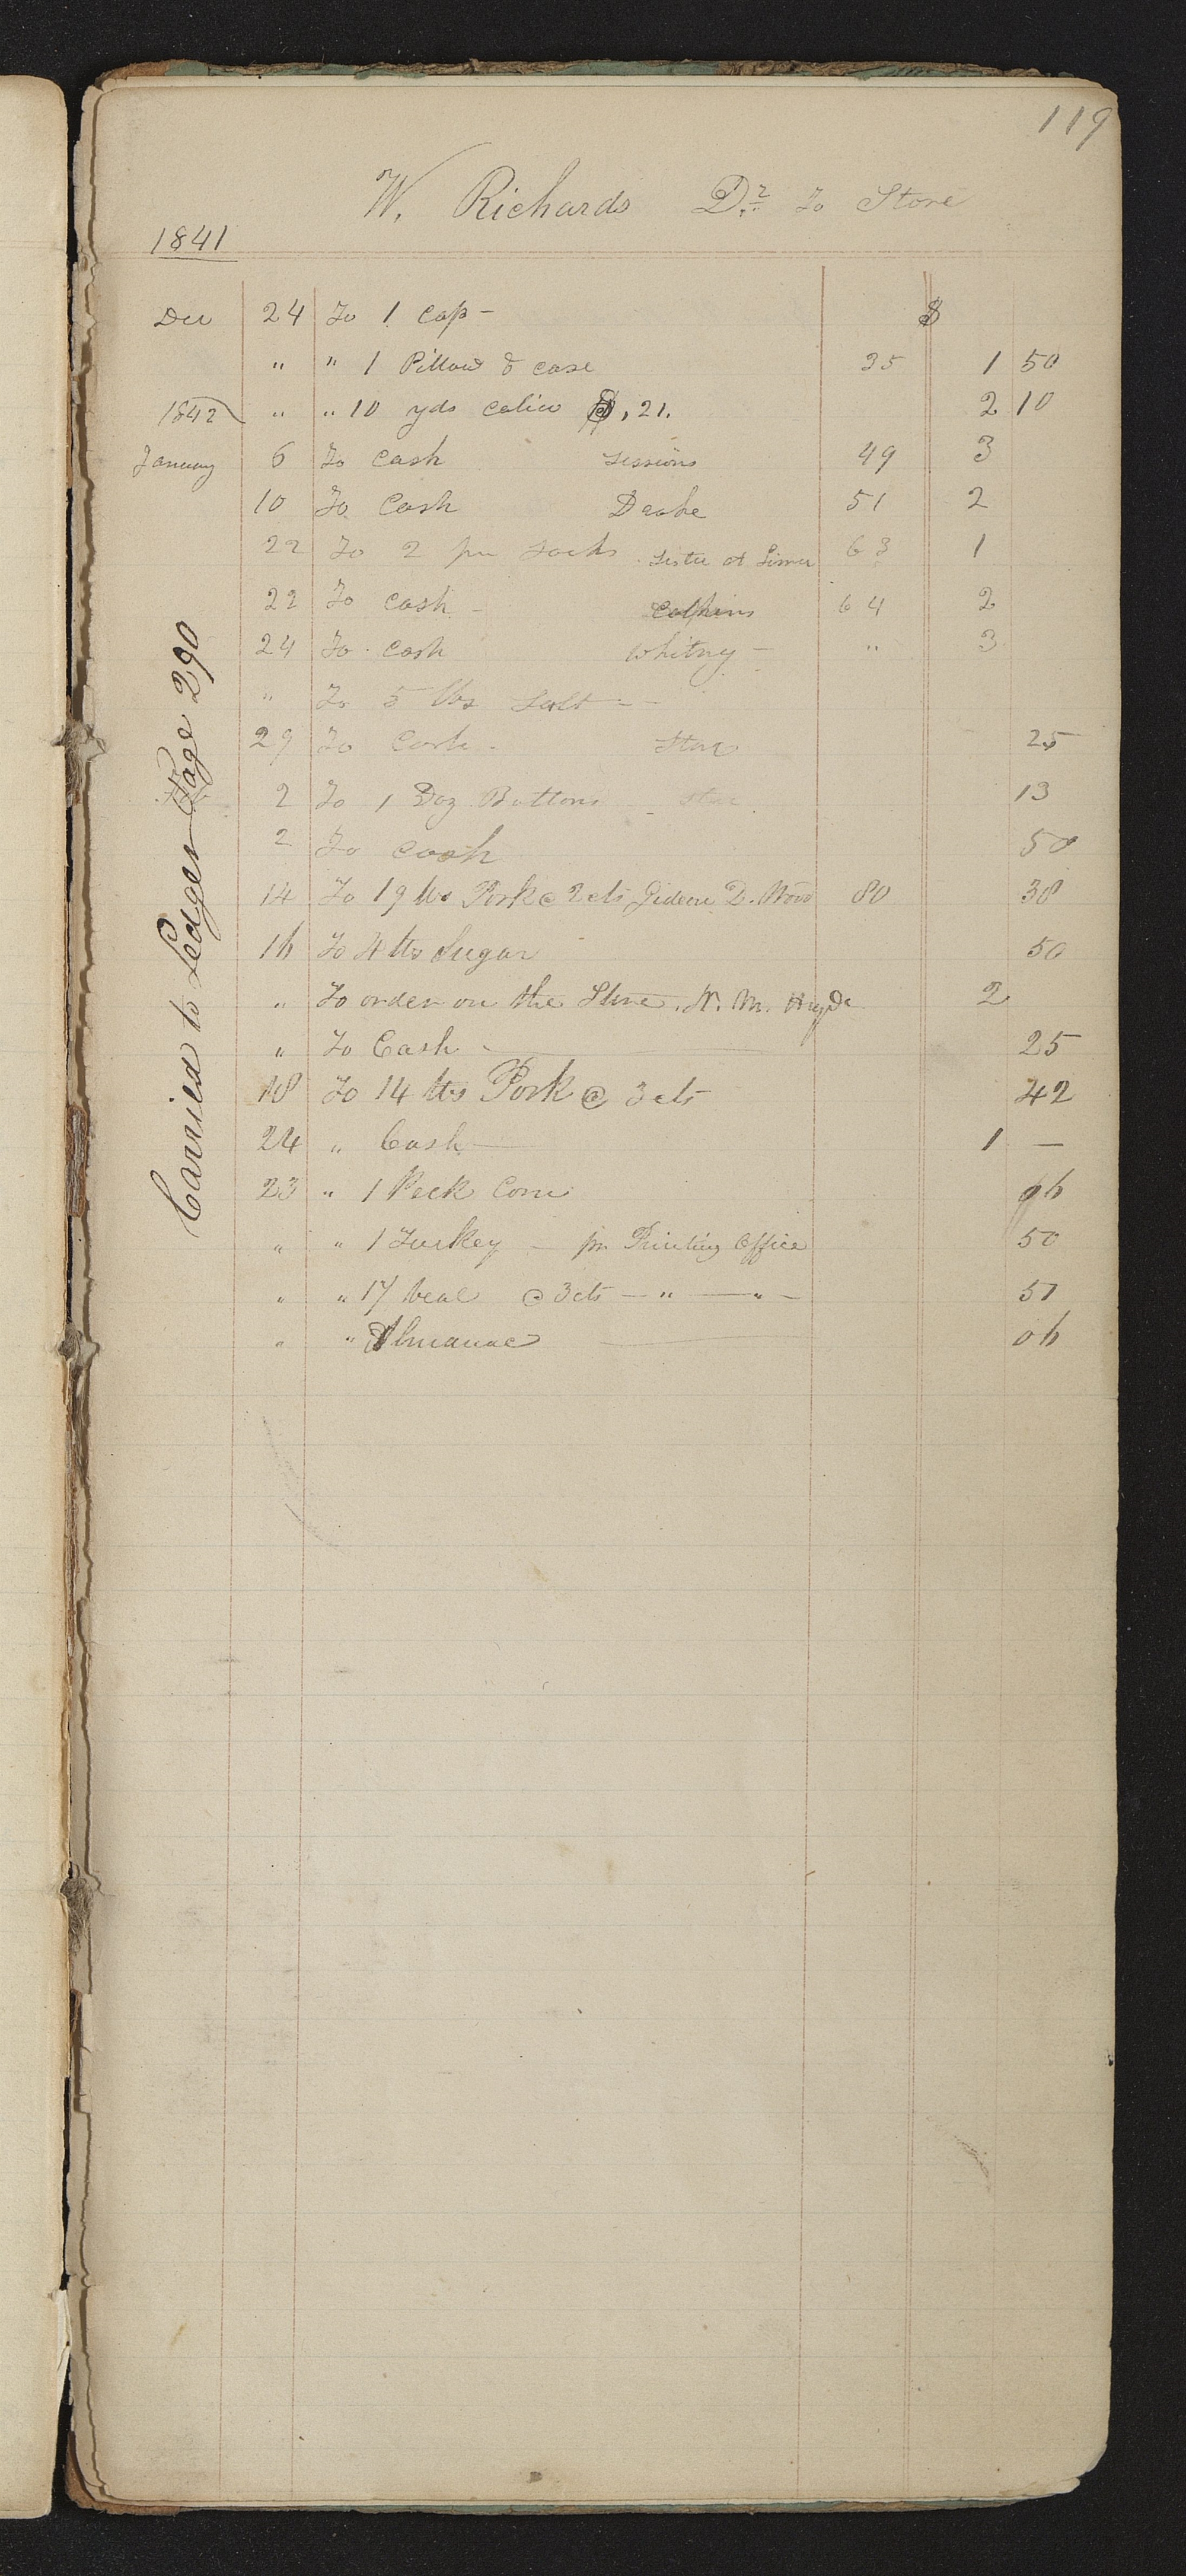 119
W. Richards Dr. To Store
1841
Dec 24 To 1 Cap - $
" " 1 Pillow & case 35 1 50
1842 " " 10 yds calico @, 21. 2 10
January 6 To Cash Sessions 49 3
10 To Cash Drake 51 2
22 To 2 pr Socks Sister at 63 1
22 To Cash - Calkins 64 2
24 To Cash Whitney - " 3
" To 5 lbs Salt - -
29 To Cash - Store 25
2 To 1 Doz Buttons - Store 13
2 To Cash 50
14 To 19 lbs Pork @ 2 cts Gideon D. Wood 80 38
16 To 4 lbs Sugar 50
" To order on the Store. N. M. Hyde 2
" To Cash 25
18 To 14 lbs Pork @ 3 cts 42
24 " Cash 1 —
23 " 1 Peck Corn 06
" " 1 Turkey - pr Printing Office 50
" " 17 Veal @ 3 cts — " — " - 51
" " Almanac 06
Carried to Ledger Page 290